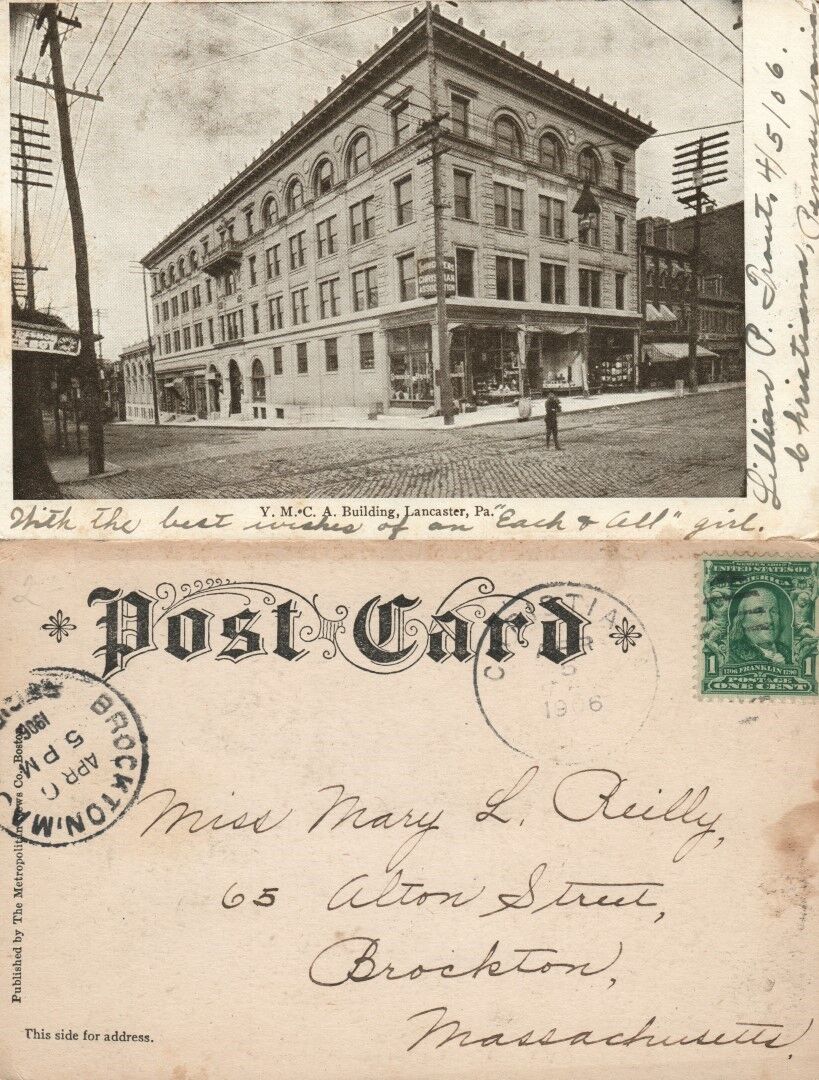 YOUNG MEN'S
CHRISTIAN
ASSOCIATION
Y. M. C. A. Building, Lancaster, Pa.
With the best wishes of an "Each & All" girl.
Lillian P. Trout, 4/5/06.
Christiana, Pennsylvania
Post Card
CHRISTIANA
5
1906
UNITED STATES OF
AMERICA
1 FRANKLIN 1
POSTAGE
ONE CENT
BROCKTON, MA
APR 6
5 PM
1906
Miss Mary L. Reilly,
65 Alton Street,
Brockton,
Massachusetts,
Published by The Metropolitan News Co., Boston
This side for address.